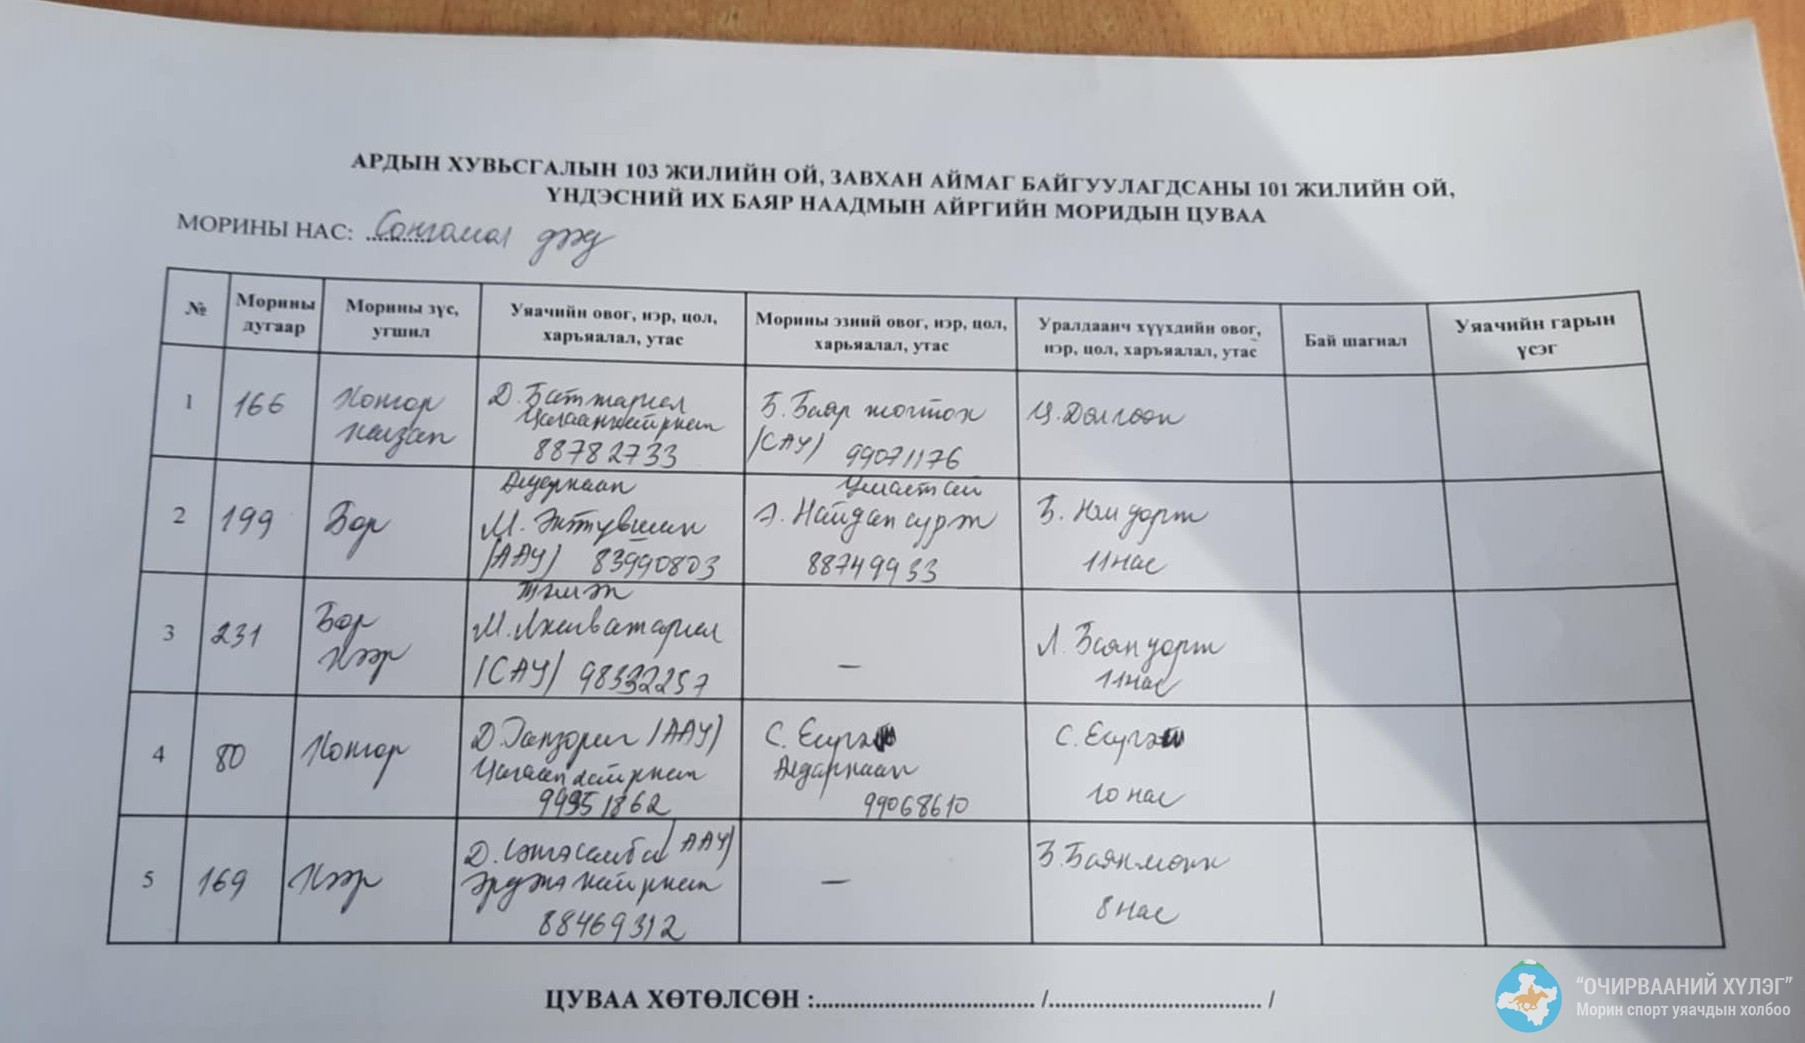 АРДЫН ХУВЬСГАЛЫН 103 ЖИЛИЙН ОЙ, ЗАВХАН АЙМАГ БАЙГУУЛАГДСАНЫ 101 ЖИЛИЙН ОЙ,
ҮНДЭСНИЙ ИХ БАЯР НААДМЫН АЙРГИЙН МОРИДЫН ЦУВАА
МОРИНЫ НАС: Сонгомол дээд
№
Морины
дугаар
Морины зүс,
угшил
Уяачийн овог, нэр, цол,
харьяалал, утас
Морины эзний овог, нэр, цол,
харьяалал, утас
Уралдаанч хүүхдийн овог,
нэр, цол, харъяалал, утас
Бай шагнал
Уяачийн гарын
үсэг
1
166
Хонгор
Халзан
Д. Батжаргал
Цагаанхайрхан
88782733
Б. Баяржогтох
/САУ/ 99071176
Ц. Долгоон
2
199
Бор
Алдархаан
М. Энхтүвшин
/ААУ/ 83990803
Улиастай
Э. Найдансүрэн
88749933
Б. Нямдорж
11 нас
3
231
Бор
Хээр
Тэлмэн
М. Лхагважаргал
/САУ/ 98532257
—
Л. Баяндорж
11 нас
4
80
Хонгор
Д. Ганзориг /ААУ/
Цагаанхайрхан
99951862
С. Есүгэн
Алдархаан
99068610
С. Есүгэн
10 нас
5
169
Хээр
/ААУ/
Эрдэнэхайрхан
88469312
—
Б. Баянмөнх
8 нас
ЦУВАА ХӨТӨЛСӨН :................................ /................................ /
“ОЧИРВААНИЙ ХҮЛЭГ”
Морин спорт уяачдын холбоо